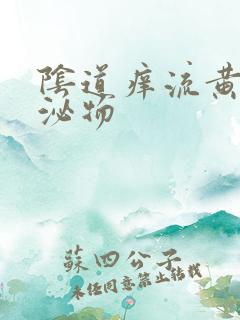 陰道痒流黄
泌物
蘇四公子
未经同意禁止转载